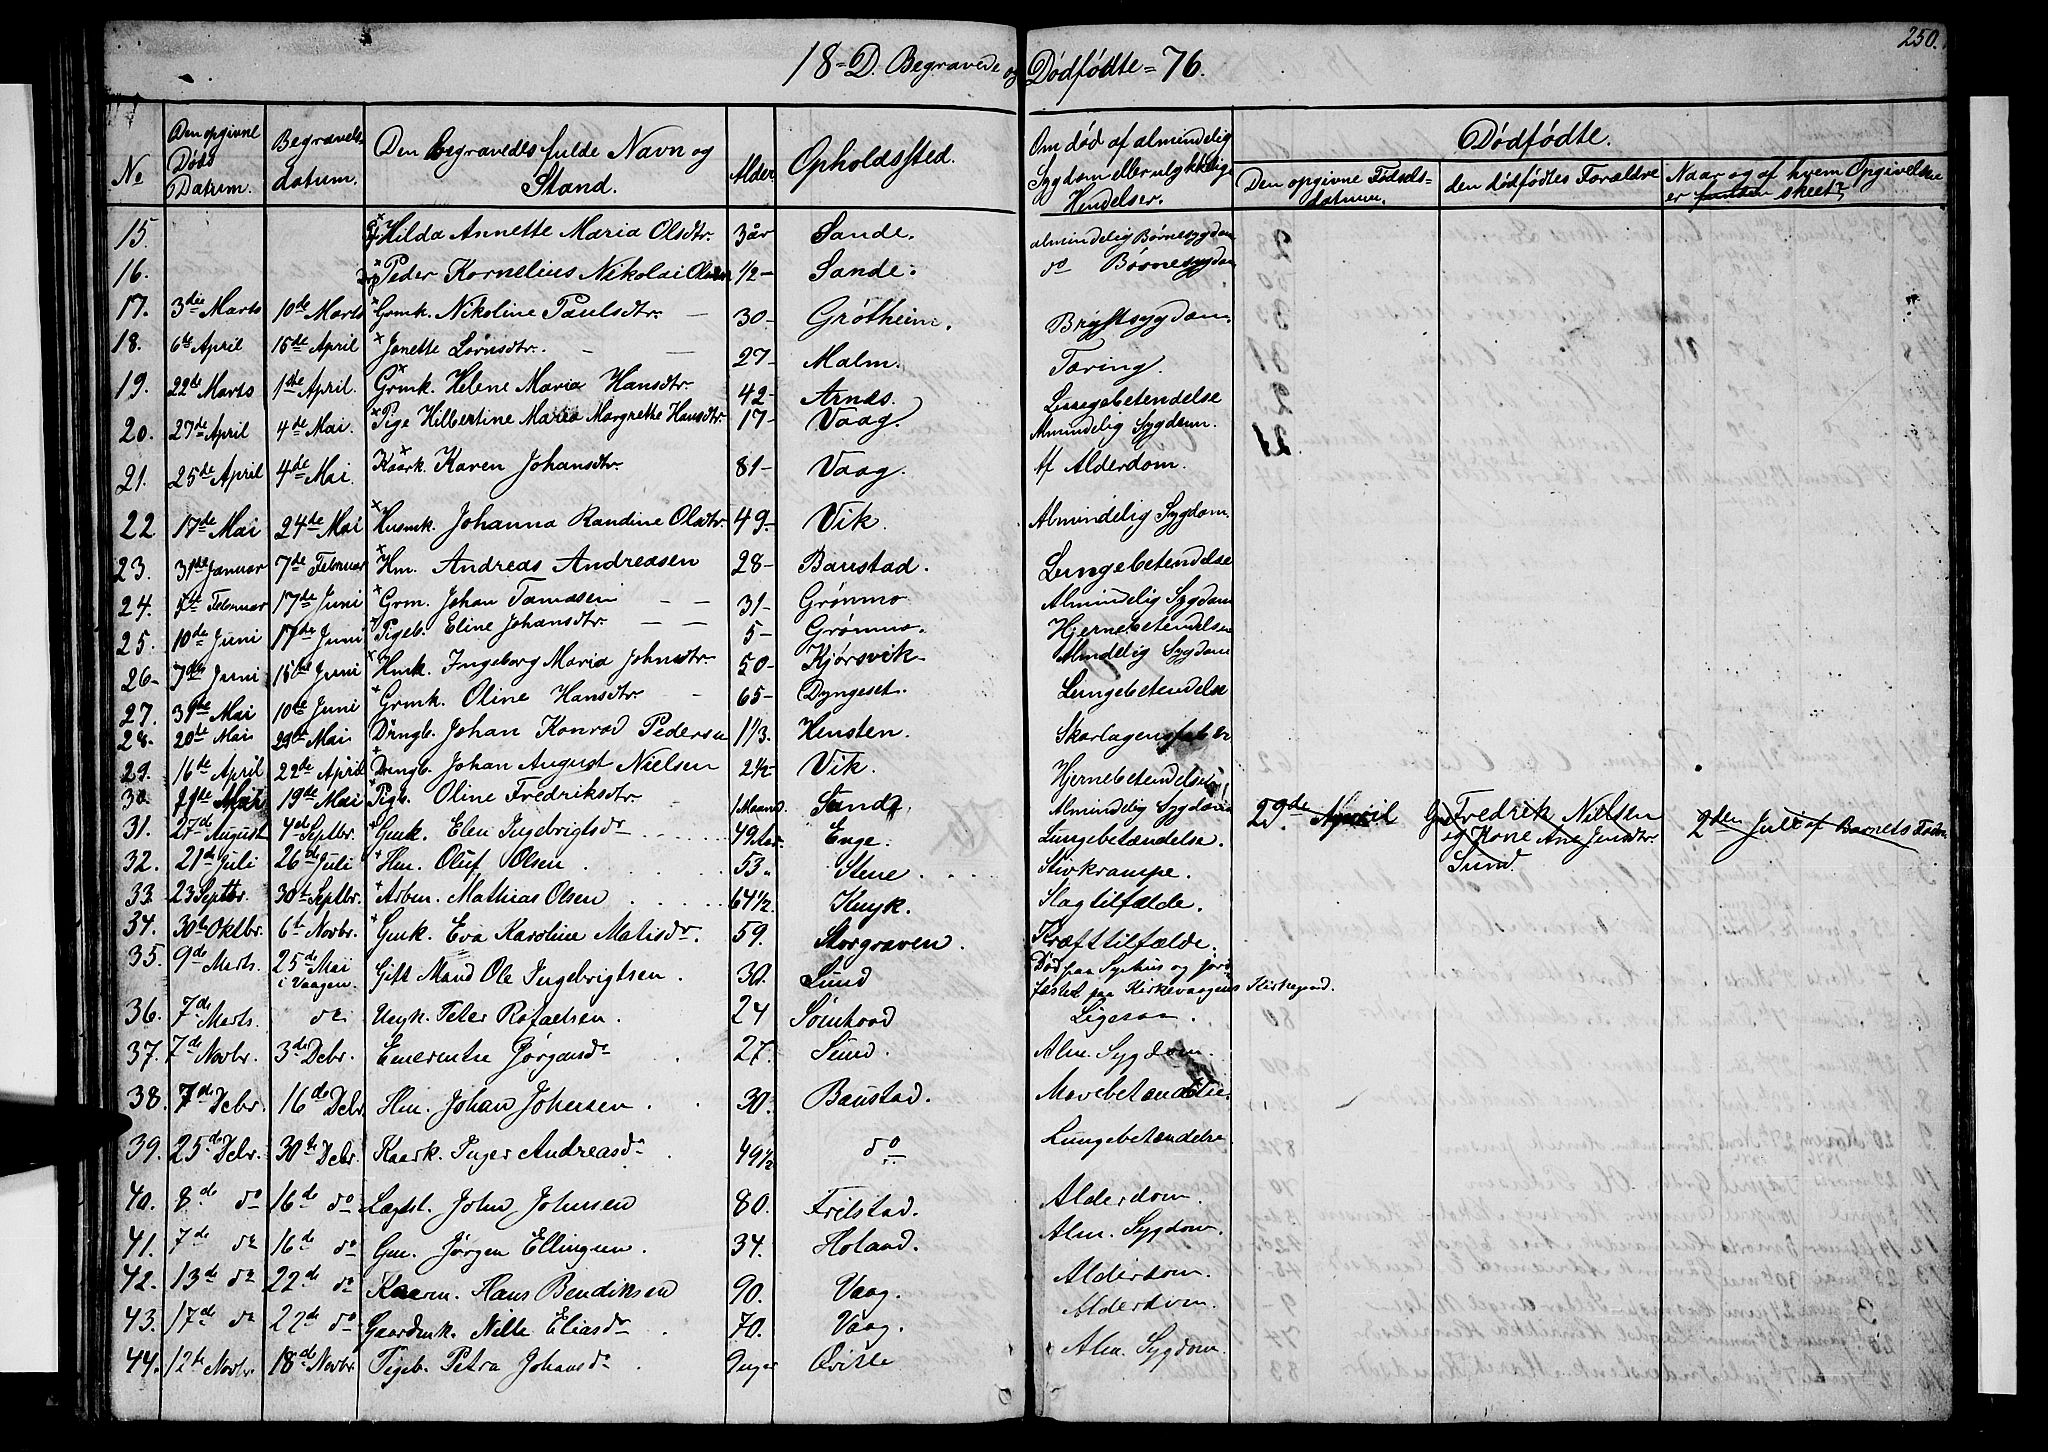 250.
18 = D. Begravede og Dødfødte = 76.
No Den opgivne Døds Datum. Begravelsdatum. Den begravedes fulde Navn og Stand. Alder Opholdssted. Om død af almindelig Sygdom eller ulykkelige Hendelser. Dødfødte.
Den opgivne Fødselsdatum. den dødfødtes Forældre Naar og af hvem Opgivelsen er skeet?
15. Hilda Annette Maria Olsdtr. 3 år Sande. almindelig Børnesygdom
16. Peder Kornelius Nikolai Olsen 1/2 - Sande. do Børnesygdom
17. 3die Marts 10de Marts Grmk. Nikoline Paulsdtr. - 30 - Grøtheim. Brystsygdom.
18. 6te April 15de April Janette Lornsdtr. - - 27 - Malm. Tæring.
19. 22de Marts 1ste April. Grmk. Helene Maria Hansdtr. 42 - Arnes. Lungebetendelse
20. 27de April 4de Mai. Pige Hilbertine Maria Margrethe Hansdtr. 17 - Vaag. Almindelig Sygdom.
21. 25de April 4de Mai. Kaark. Karen Johansdtr. 81 - Vaag. Af Alderdom.
22 17de Mai 24de Mai Husmk. Johanna Randine Olsdtr. 49. - Vik. Almindelig Sygdom.
23. 31de Januar 7de Februar Hm. Andreas Andreasen 28 - Baustad. Lungebetendelse
24. Februar 17de Juni Grm. Johan Tomasen - - 31 - Grønmo Almindelig Sygdom
25. 10de Juni 17de Juni Pigeb. Eline Johansdtr. - - 5 - Grønmo. Hjernebetendelse
26 - 7de Juni 15de Juni Hmk. Ingeborg Maria Johnsdtr. 50 - Kjørsvik Almindelig Sygdom
27. 31te Mai 10de Juni Grmk. Oline Hansdtr. - 65 - Dyngeset. Lungebetendelse
28. 20de Mai 29de Mai Drngb. Johan Konrad Pedersen 1 1/3. Hensten. Skarlagensfeber
29. 16de April 22de April Drngb. Johan August Nielsen 2 1/2 - Vik. Hjernebetendelse
30 Mai 19de Mai Pigb. Oline Fredriksdtr. - 1 Maaned. Sande. Almindelig Sygdom 29de April Fredrik Nielsen
og Kone Ane Jensdtr. 2den Juli af Barnets Fader
Sund.
31. 27de August 4de Septbr. Gmk. Elen Ingebrigtsdr 49 Aar. Enge. Lungebetændelse.
32. 21de Juli 26de Juli Hm. Oluf Olsen. 53. Stene. Stivkrampe.
33. 23 Septbr. 30te Septbr. Arbm. Mathias Olsen 64 1/2. Knyk. Slagtilfælde.
34. 30te Oktbr. 6te Novbr. Gmk. Eva Karoline Matisdr. 59. Storgraven. Kræfttilfælde.
35. 9de Marts. 25de Mai i Vaagen. Gift Mand Ole Ingebrigtsen. 30. Sund Død paa Syhus og jordfæstet paa Kirkevaagens Kirkegaard.
36. 7de Marts. do Ungk. Peter Rafaelsen. 24 Ligesaa.
37. 7de Novbr. 3de Debr. Emerentse Jørgensdr 27. Sund. Alm. Sygdom.
38. 7de Debr. 16de Debr. Hm. Johan Johnsen. 30. Baustad. Mavebetændelse.
39. 25de Debr. 30te Debr. Kaark. Inger Andreasdr. 49 1/2 do Lungebetændelse.
40. 8de do 16de do Lægdsl. John Johnsen 80. Frilstad. Alderdom.
41. 7de do 16de do Gm. Jørgen Ellingsen. 34. Holand. Alm. Sygdom.
42. 13de do 22de do Kaarm. Hans Bendiksen 90. Vaag. Alderdom.
43. 17de do 22de do Gaardmk. Nille Eliasdr. 70. Vaag. Alderdom.
44. 12te Novbr. 18de Novbr. Pigeb. Petra Johansdr. 9 uger Qvisle Alm. Sygdom.